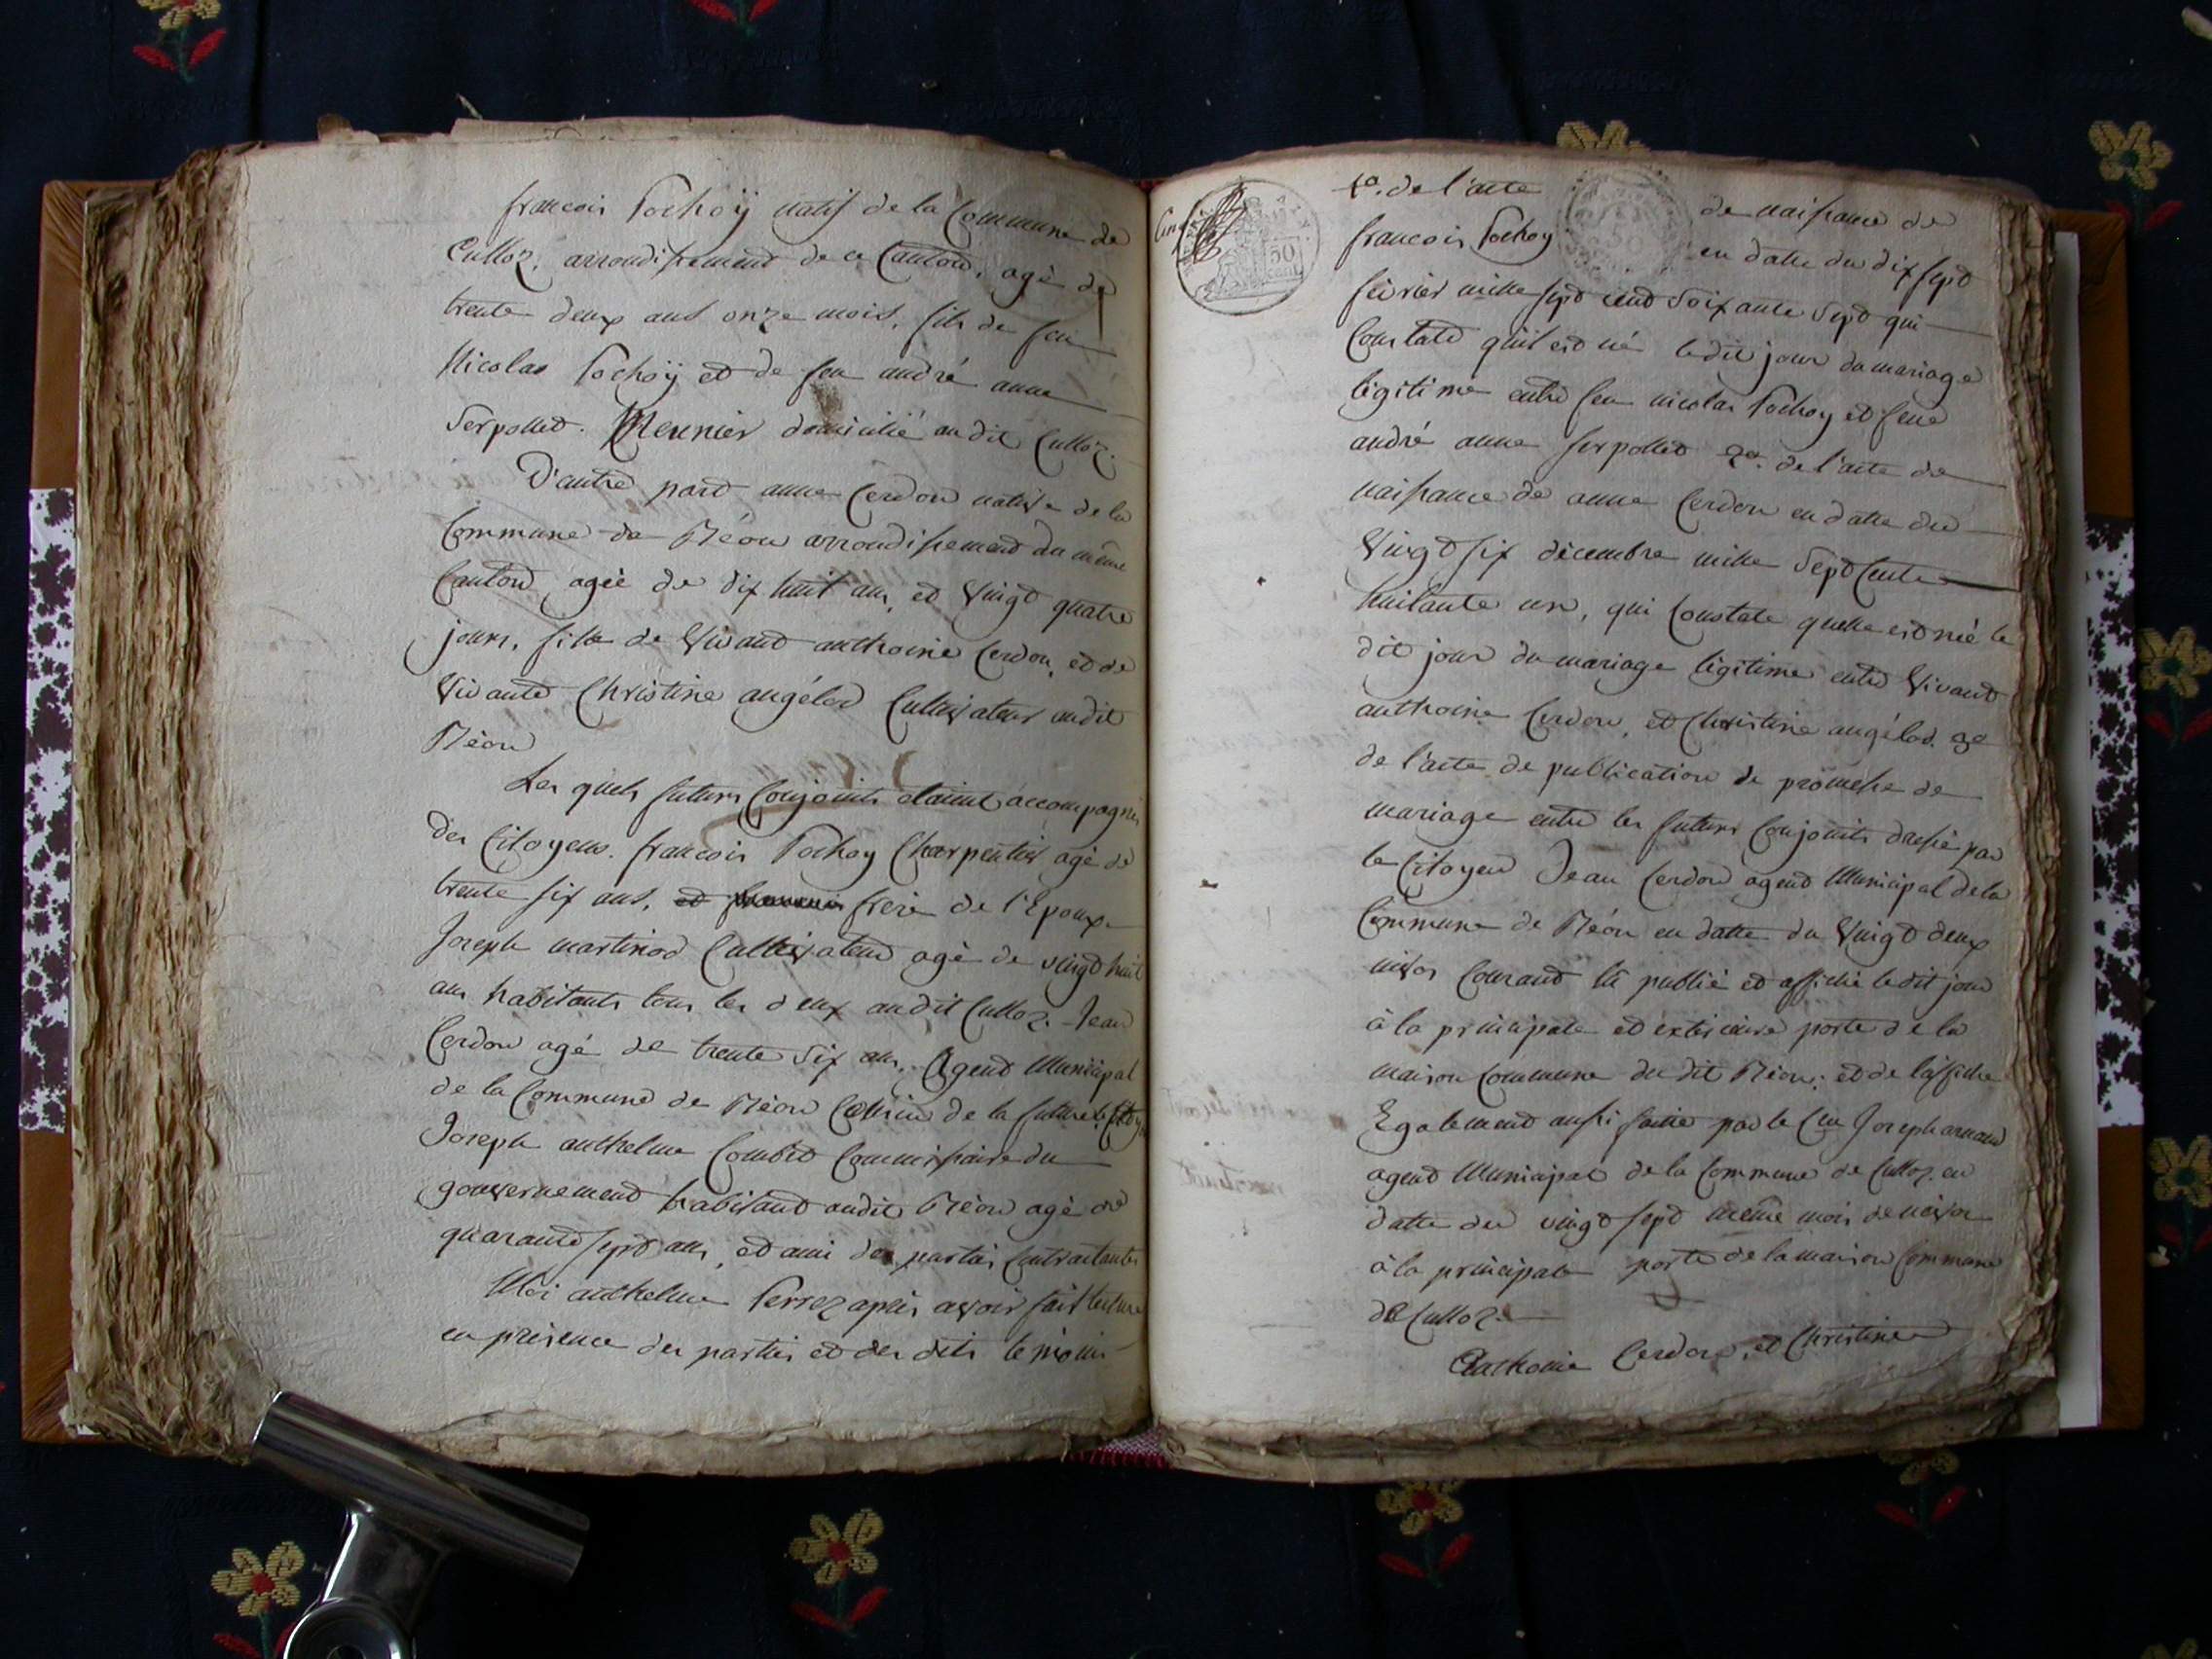 francois Pochoÿ natif de la Commune de
Culloz, arrondissement de ce Canton, agé de
trente deux ans onze mois, fils de feu
Nicolas Pochoÿ et de feu andré anne
Serpollet. Meunier domicilié audit Culloz.
D'autre part anne Cerdon native de la
Commune de Béon arrondissement du même
Canton, agée de dix huit ans, et Vingt quatre
jours, fille de Vivant anthoine Cerdon, et de
Vivante Christine angélod Cultivateur audit
Béon
Les quels futurs Conjoints étaient accompagnés
des Citoyens. francois Pochoy Charpentier agé de
trente six ans, et frere de l'Epoux.
Joseph martinod Cultivateur agé de vingt huit
ans habitants tous les deux audit Culloz. Jean
Cerdon agé de trente Six ans, Agent Municipal
de la Commune de Béon Cousin de la future.
Joseph anthelme Combet Commissaire du
gouvernement habitant audit Béon agé de
quarante sept ans, et ami des parties Contractantes
Moi anthelme Perrez apres avoir fait lecture
en présence des parties et des dits témoins
50
cent
1o. de l'acte de naissance de
francois Pochoy en datte du dix sept
février mille sept cent Soixante Sept qui
Constate qu'il est né ledit jour du mariage
légitime entre feu nicolas Pochoy et feue
andré anne serpollet 2o. de l'acte de
naissance de anne Cerdon en datte du
Vingt six décembre mille Sept Cents
huitante un, qui Constate quelle est née le
dit jour du mariage légitime entre Vivant
anthoine Cerdon, et Christine angélod. 3o
de l'acte de publication de promesse de
mariage entre les futurs Conjoints dressé par
le Citoyen Jean Cerdon agent Municipal de la
Commune de Béon en datte du Vingt deux
nivos Courant publié et affiché le dit jour
à la principale et extérieure porte de la
maison Commune du dit Béon; et de l'affiche
Egalement aussi faite par le Cen Joseph
agent Municipal de la Commune de Culloz. en
datte du vingt sept même mois de nivos
à la principale porte de la maison Commune
de Culloz.
Anthoine Cerdon, et Christine